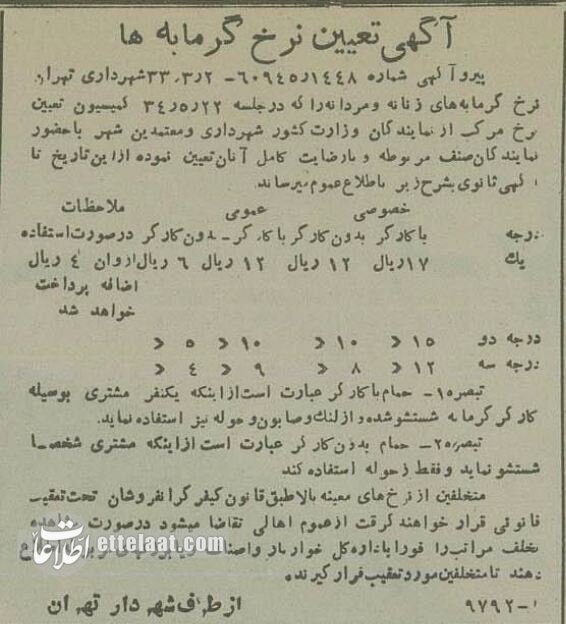 آگهی تعیین نرخ گرمابه ها
پیرو آگهی شماره ۶۰۹۴۵/۱۴۴۸ - ۳۳/۳/۲ شهرداری تهران
نرخ گرمابه‌های زنانه و مردانه را که در جلسه ۳۴/۵/۲۲ کمیسیون تعیین
نرخ مرکب از نمایندگان وزارت کشور شهرداری و معتمدین شهر باحضور
نمایندگان صنف مربوطه و بارضایت کامل آنان تعیین نموده از این تاریخ تا
آگهی ثانوی بشرح زیر باطلاع عموم میرساند.
خصوصی عمومی ملاحظات
درجه با کارگر بدون کارگر با کارگر - بدون کارگر درصورت استفاده
یك ۱۷ریال ۱۲ ریال ۱۲ ریال ۶ ریال ازوان ۴ ریال
اضافه پرداخت
خواهد شد
درجه دو ۱۵ » ۱۰ » ۱۰ » ۵ »
درجه سه ۱۲ » ۸ » ۹ » ۴ »
تبصره۱- حمام باکارگر عبارت است از اینکه یکنفر مشتری بوسیله
کارگر گرمابه شستشو شده و از لنگ و صابون و حوله نیز استفاده نماید.
تبصره۲- حمام بدون کارگر عبارت است از اینکه مشتری شخصا
شستشو نماید و فقط از حوله استفاده کند
متخلفین از نرخ‌های معینه بالا طبق قانون کیفر گرانفروشان تحت تعقیب
قانونی قرار خواهند گرفت از عموم اهالی تقاضا میشود درصورت مشاهده
تخلف مراتب را فورا باداره کل خواربار و اصناف
دهند تا متخلفین مورد تعقیب قرار گیرند.
۹۷۹۲-۱ ازطرف شهردار تهران
اطلاعات ettelaat.com